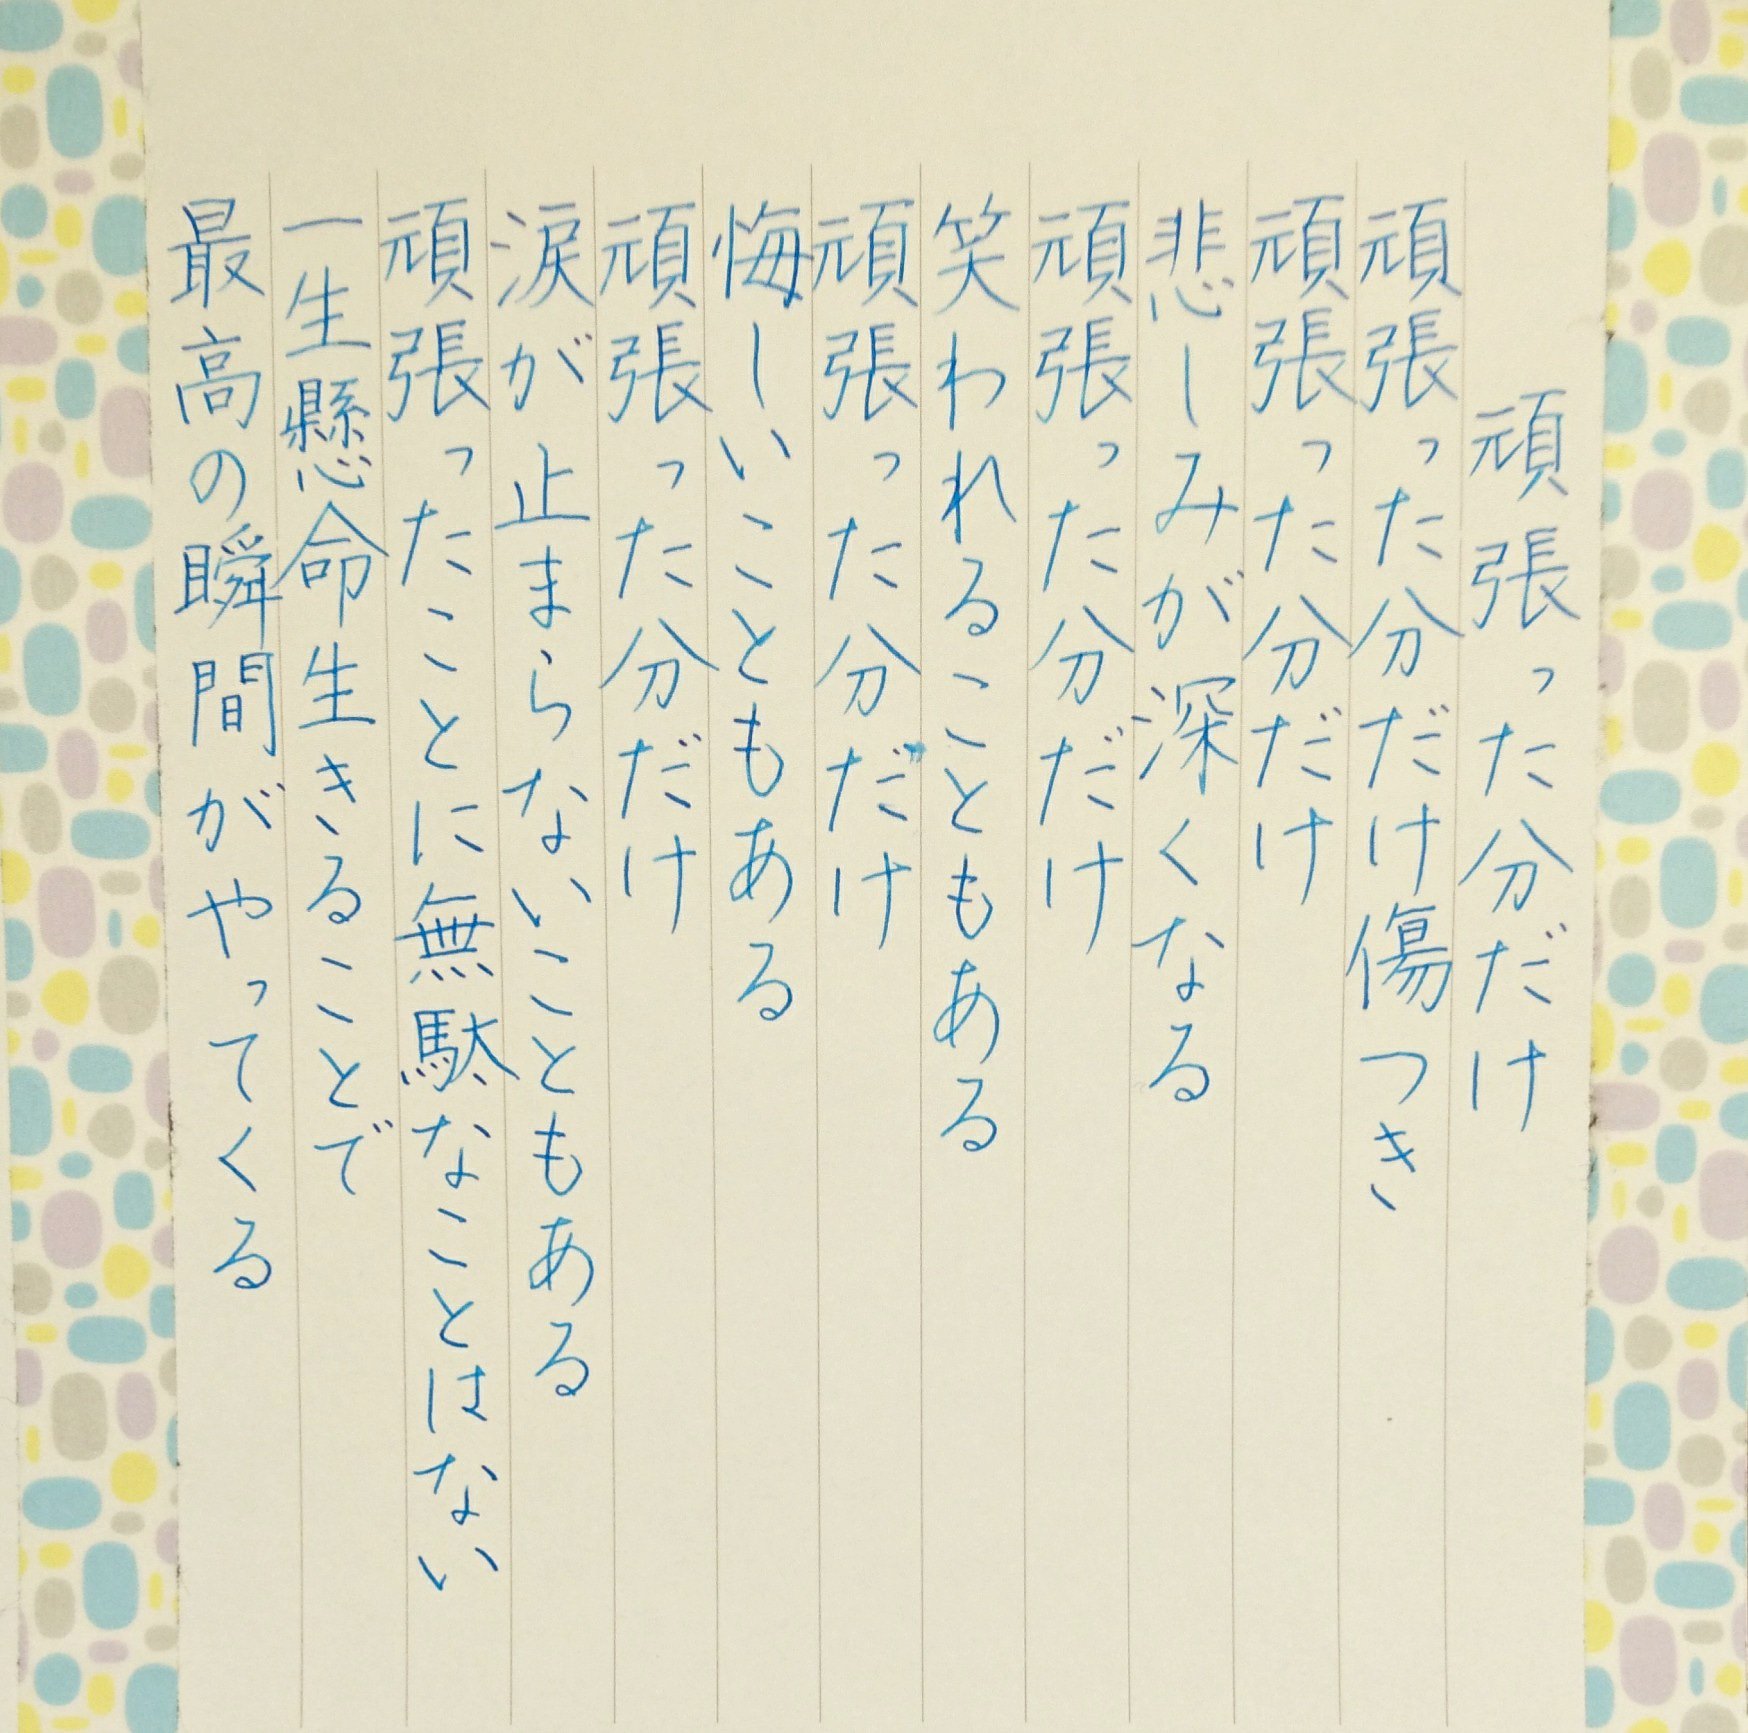 頑張った分だけ
頑張った分だけ傷つき
頑張った分だけ
悲しみが深くなる
頑張った分だけ
笑われることもある
頑張った分だけ
悔しいこともある
頑張った分だけ
涙が止まらないこともある
頑張ったことに無駄なことはない
一生懸命生きることで
最高の瞬間がやってくる